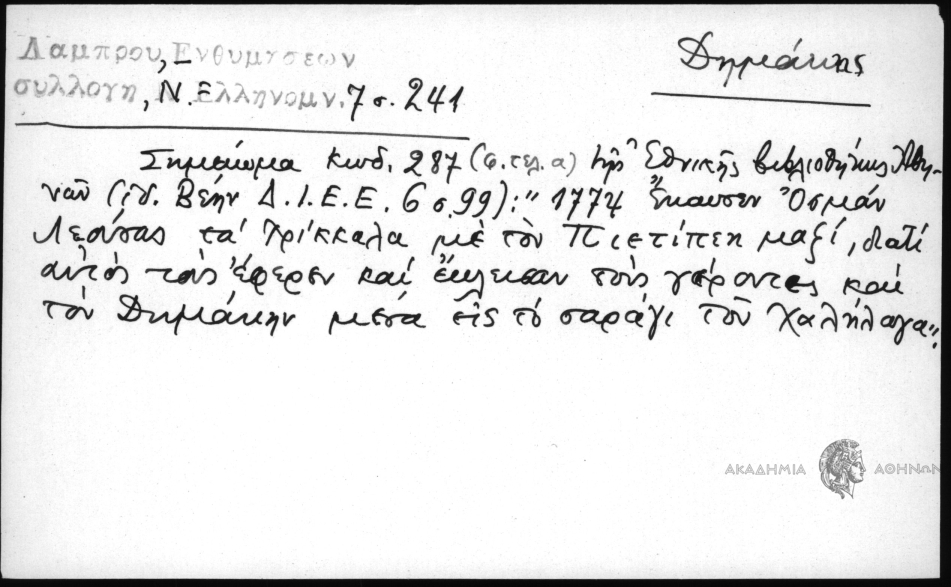 Λαμπρου, Ενθυμησεων
συλλογη, Ν. Ελληνομν. 7 σ. 241
Δημάκης
Σημείωμα κωδ. 287 (φ. τελ. α) τῆς Ἐθνικῆς βιβλιοθήκης Ἀθη-
νῶν (ἰδ. Βέην Δ.Ι.Ε.Ε. 6 σ. 99): "1774 Ἔκαυσεν Ὀσμάν
τά Τρίκκαλα μέ τόν Πιετίπεη μαζί, διατί
αὐτός τούς ἔφερεν καί ἔκλεισαν τούς γέροντες καί
τόν Δημάκην μέσα εἰς τό σαράγι τοῦ Χαλήλαγα".
ΑΚΑΔΗΜΙΑ ΑΘΗΝΩΝ